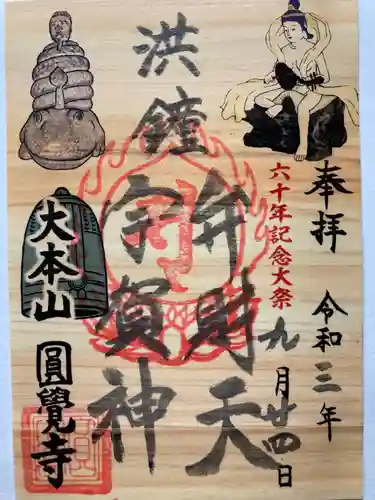 奉拝 令和三年
九月廿四日
六十年記念大祭
洪鐘
弁財天
宇賀神
大本山
圓覺寺